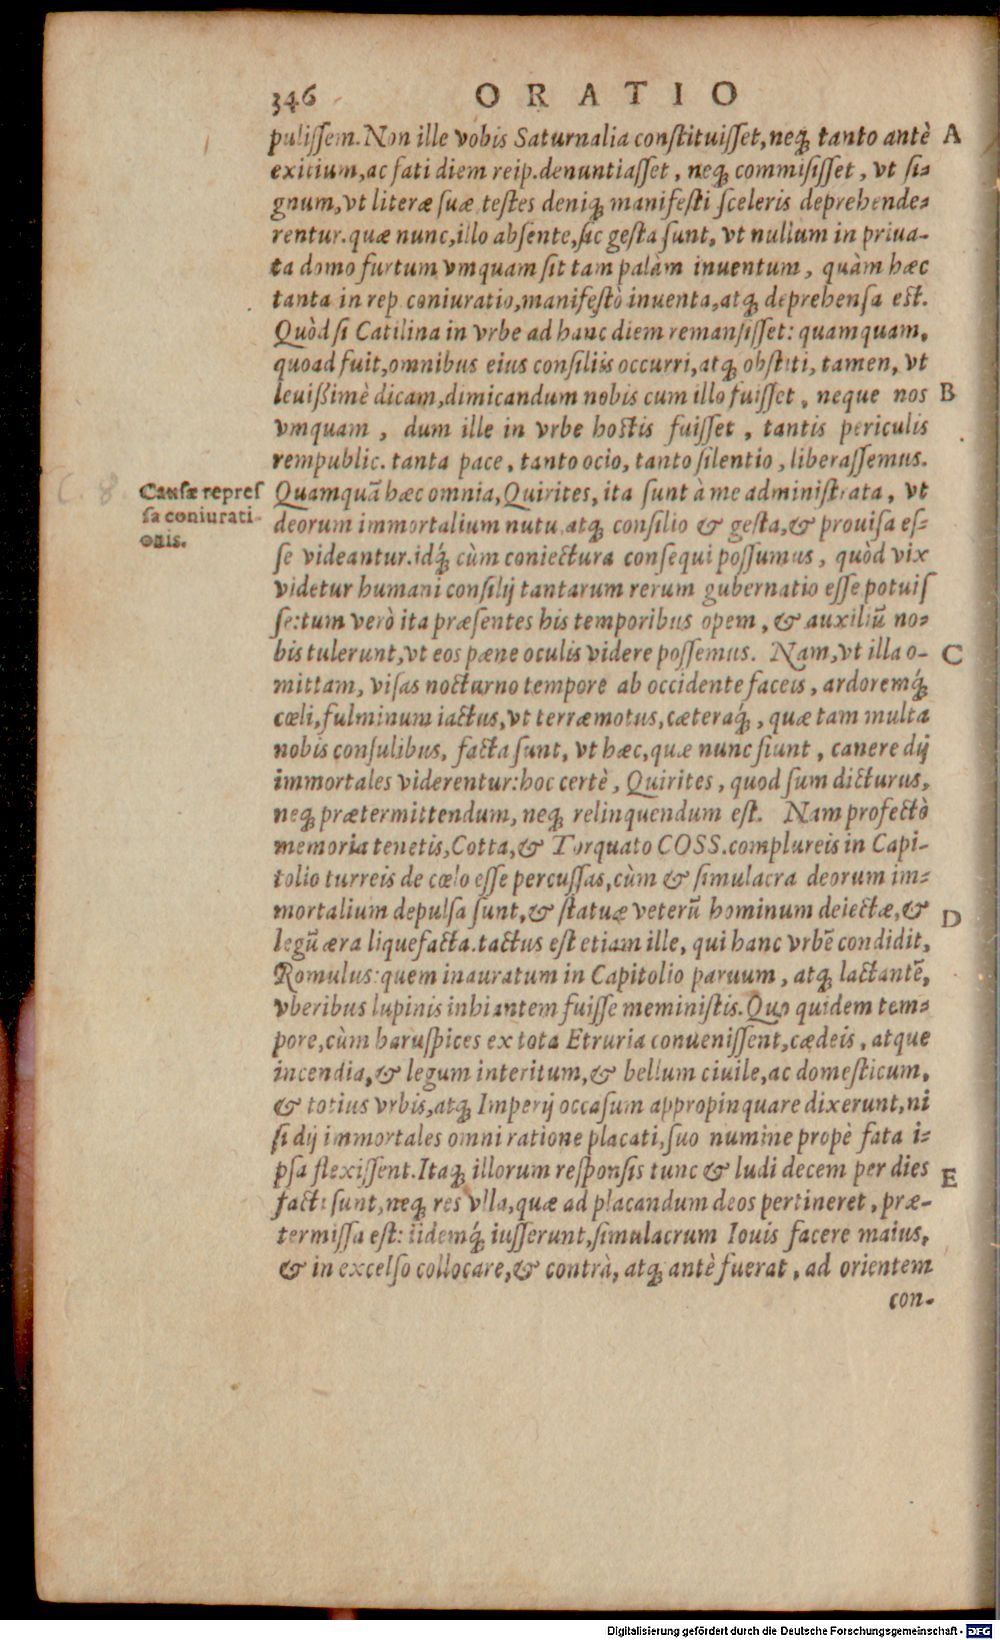 346 ORATIO
puliſſem. Non ille vobis Saturnalia conſtituiſſet, neq; tanto antè A
exitium, ac fati diem reip. denuntiaſſet, neq; commiſiſſet, vt ſi-
gnum, vt literæ ſuæ teſtes deniq; manifeſti ſceleris deprehende-
rentur. quæ nunc, illo abſente, ſic geſta ſunt, vt nullum in priua-
ta domo furtum vmquam ſit tam palàm inuentum, quàm hæc
tanta in rep. coniuratio, manifeſtò inuenta, atq; deprehenſa eſt.
Quòd ſi Catilina in vrbe ad hanc diem remanſiſſet: quamquam,
quoad fuit, omnibus eius conſiliis occurri, atq; obſtiti, tamen, vt
leuißimè dicam, dimicandum nobis cum illo fuiſſet, neque nos B
vmquam, dum ille in vrbe hoſtis fuiſſet, tantis periculis
rempublic. tanta pace, tanto ocio, tanto ſilentio, liberaſſemus.
C. 8.
Cauſæ repreſ
ſa coniurati-
onis.
Quamquā hæc omnia, Quirites, ita ſunt à me adminiſtrata, vt
deorum immortalium nutu, atq; conſilio & geſta, & prouiſa eſ-
ſe videantur. idq́; cùm coniectura conſequi poſſumus, quòd vix
videtur humani conſilij tantarum rerum gubernatio eſſe potuiſ
ſe: tum verò ita præſentes his temporibus opem, & auxiliū no-
bis tulerunt, vt eos pæne oculis videre poſſemus. Nam, vt illa o- C
mittam, viſas nocturno tempore ab occidente faceis, ardoremq́;
cœli, fulminum iactus, vt terræmotus, cæteraq́;, quæ tam multa
nobis conſulibus, facta ſunt, vt hæc, quæ nunc fiunt, canere dij
immortales viderentur: hoc certè, Quirites, quod ſum dicturus,
neq; prætermittendum, neq; relinquendum eſt. Nam profectò
memoria tenetis, Cotta, & Torquato COSS. complureis in Capi-
tolio turreis de cœlo eſſe percuſſas, cùm & ſimulacra deorum im-
mortalium depulſa ſunt, & ſtatuæ veterū hominum deiectæ, & D
legū æra liquefacta. tactus eſt etiam ille, qui hanc vrbē condidit,
Romulus: quem inauratum in Capitolio paruum, atq; lactantē,
vberibus lupinis inhiantem fuiſſe meminiſtis. Quo quidem tem-
pore, cùm haruſpices ex tota Etruria conueniſſent, cædeis, atque
incendia, & legum interitum, & bellum ciuile, ac domeſticum,
& totius vrbis, atq; Imperij occaſum appropinquare dixerunt, ni
ſi dij immortales omni ratione placati, ſuo numine propè fata i-
pſa flexiſſent. Itaq; illorum reſponſis tunc & ludi decem per dies E
facti ſunt, neq; res vlla, quæ ad placandum deos pertineret, præ-
termiſſa eſt: iidemq́; iuſſerunt, ſimulacrum Iouis facere maius,
& in excelſo collocare, & contrà, atq; antè fuerat, ad orientem
con-
Digitalisierung gefördert durch die Deutsche Forschungsgemeinschaft - DFG